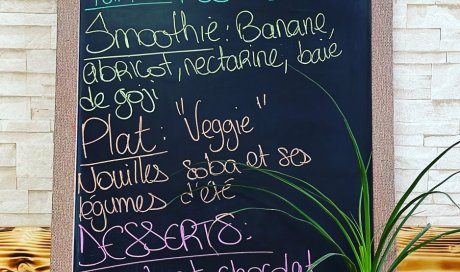 Smoothie: Banane,
abricot, nectarine, baie
de goji
Plat: "Veggie"
Nouilles soba et ses
légumes d'été
DESSERTS:
chocolat